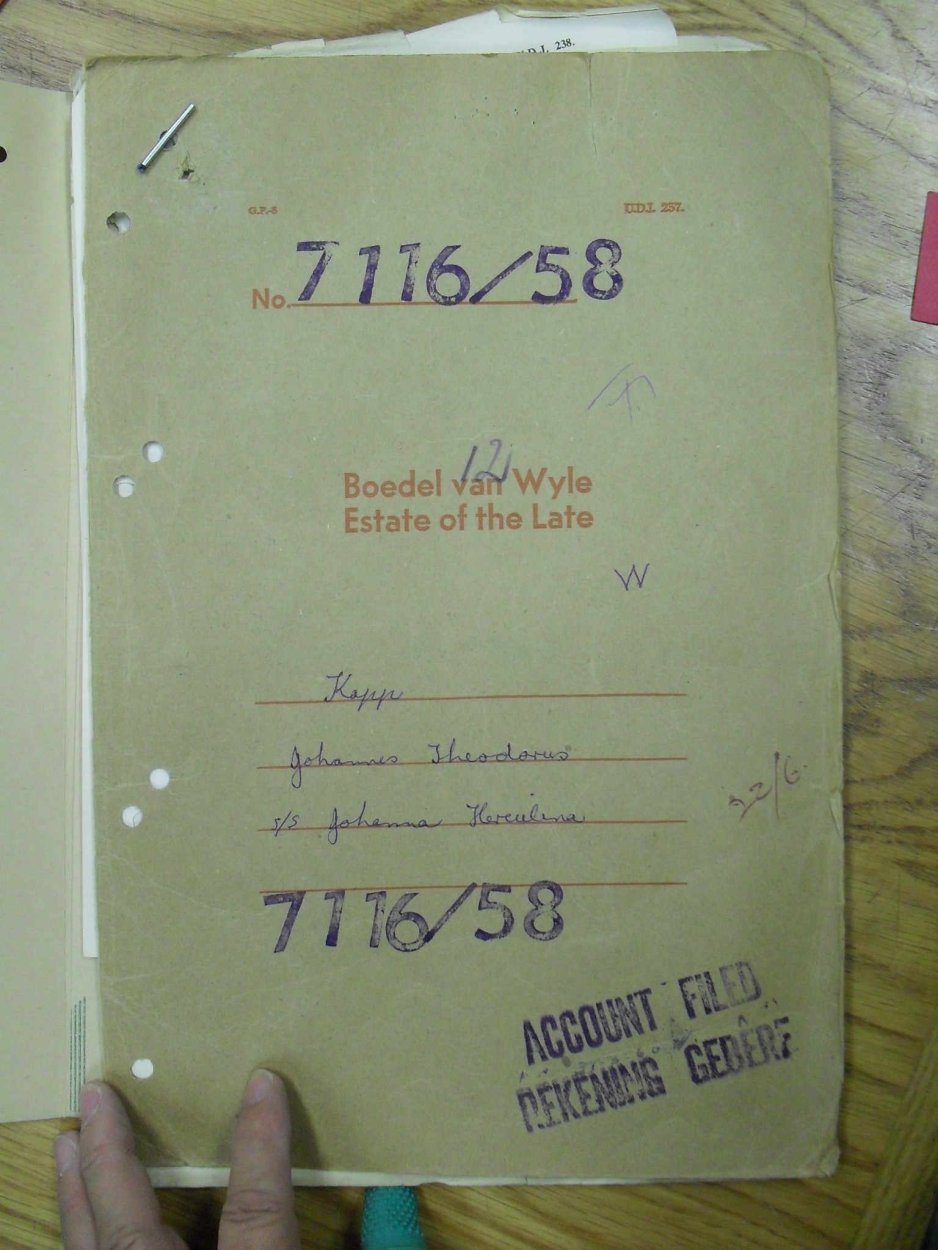 U.D.J. 238.
G.P.-S
U.D.J. 257.
No. 7116/58
12
Boedel van Wyle
Estate of the Late
W
Kapp
Johannes Theodorus
s/s Johanna Herculina
22/6
7116/58
ACCOUNT FILED
REKENING GEDÊRF